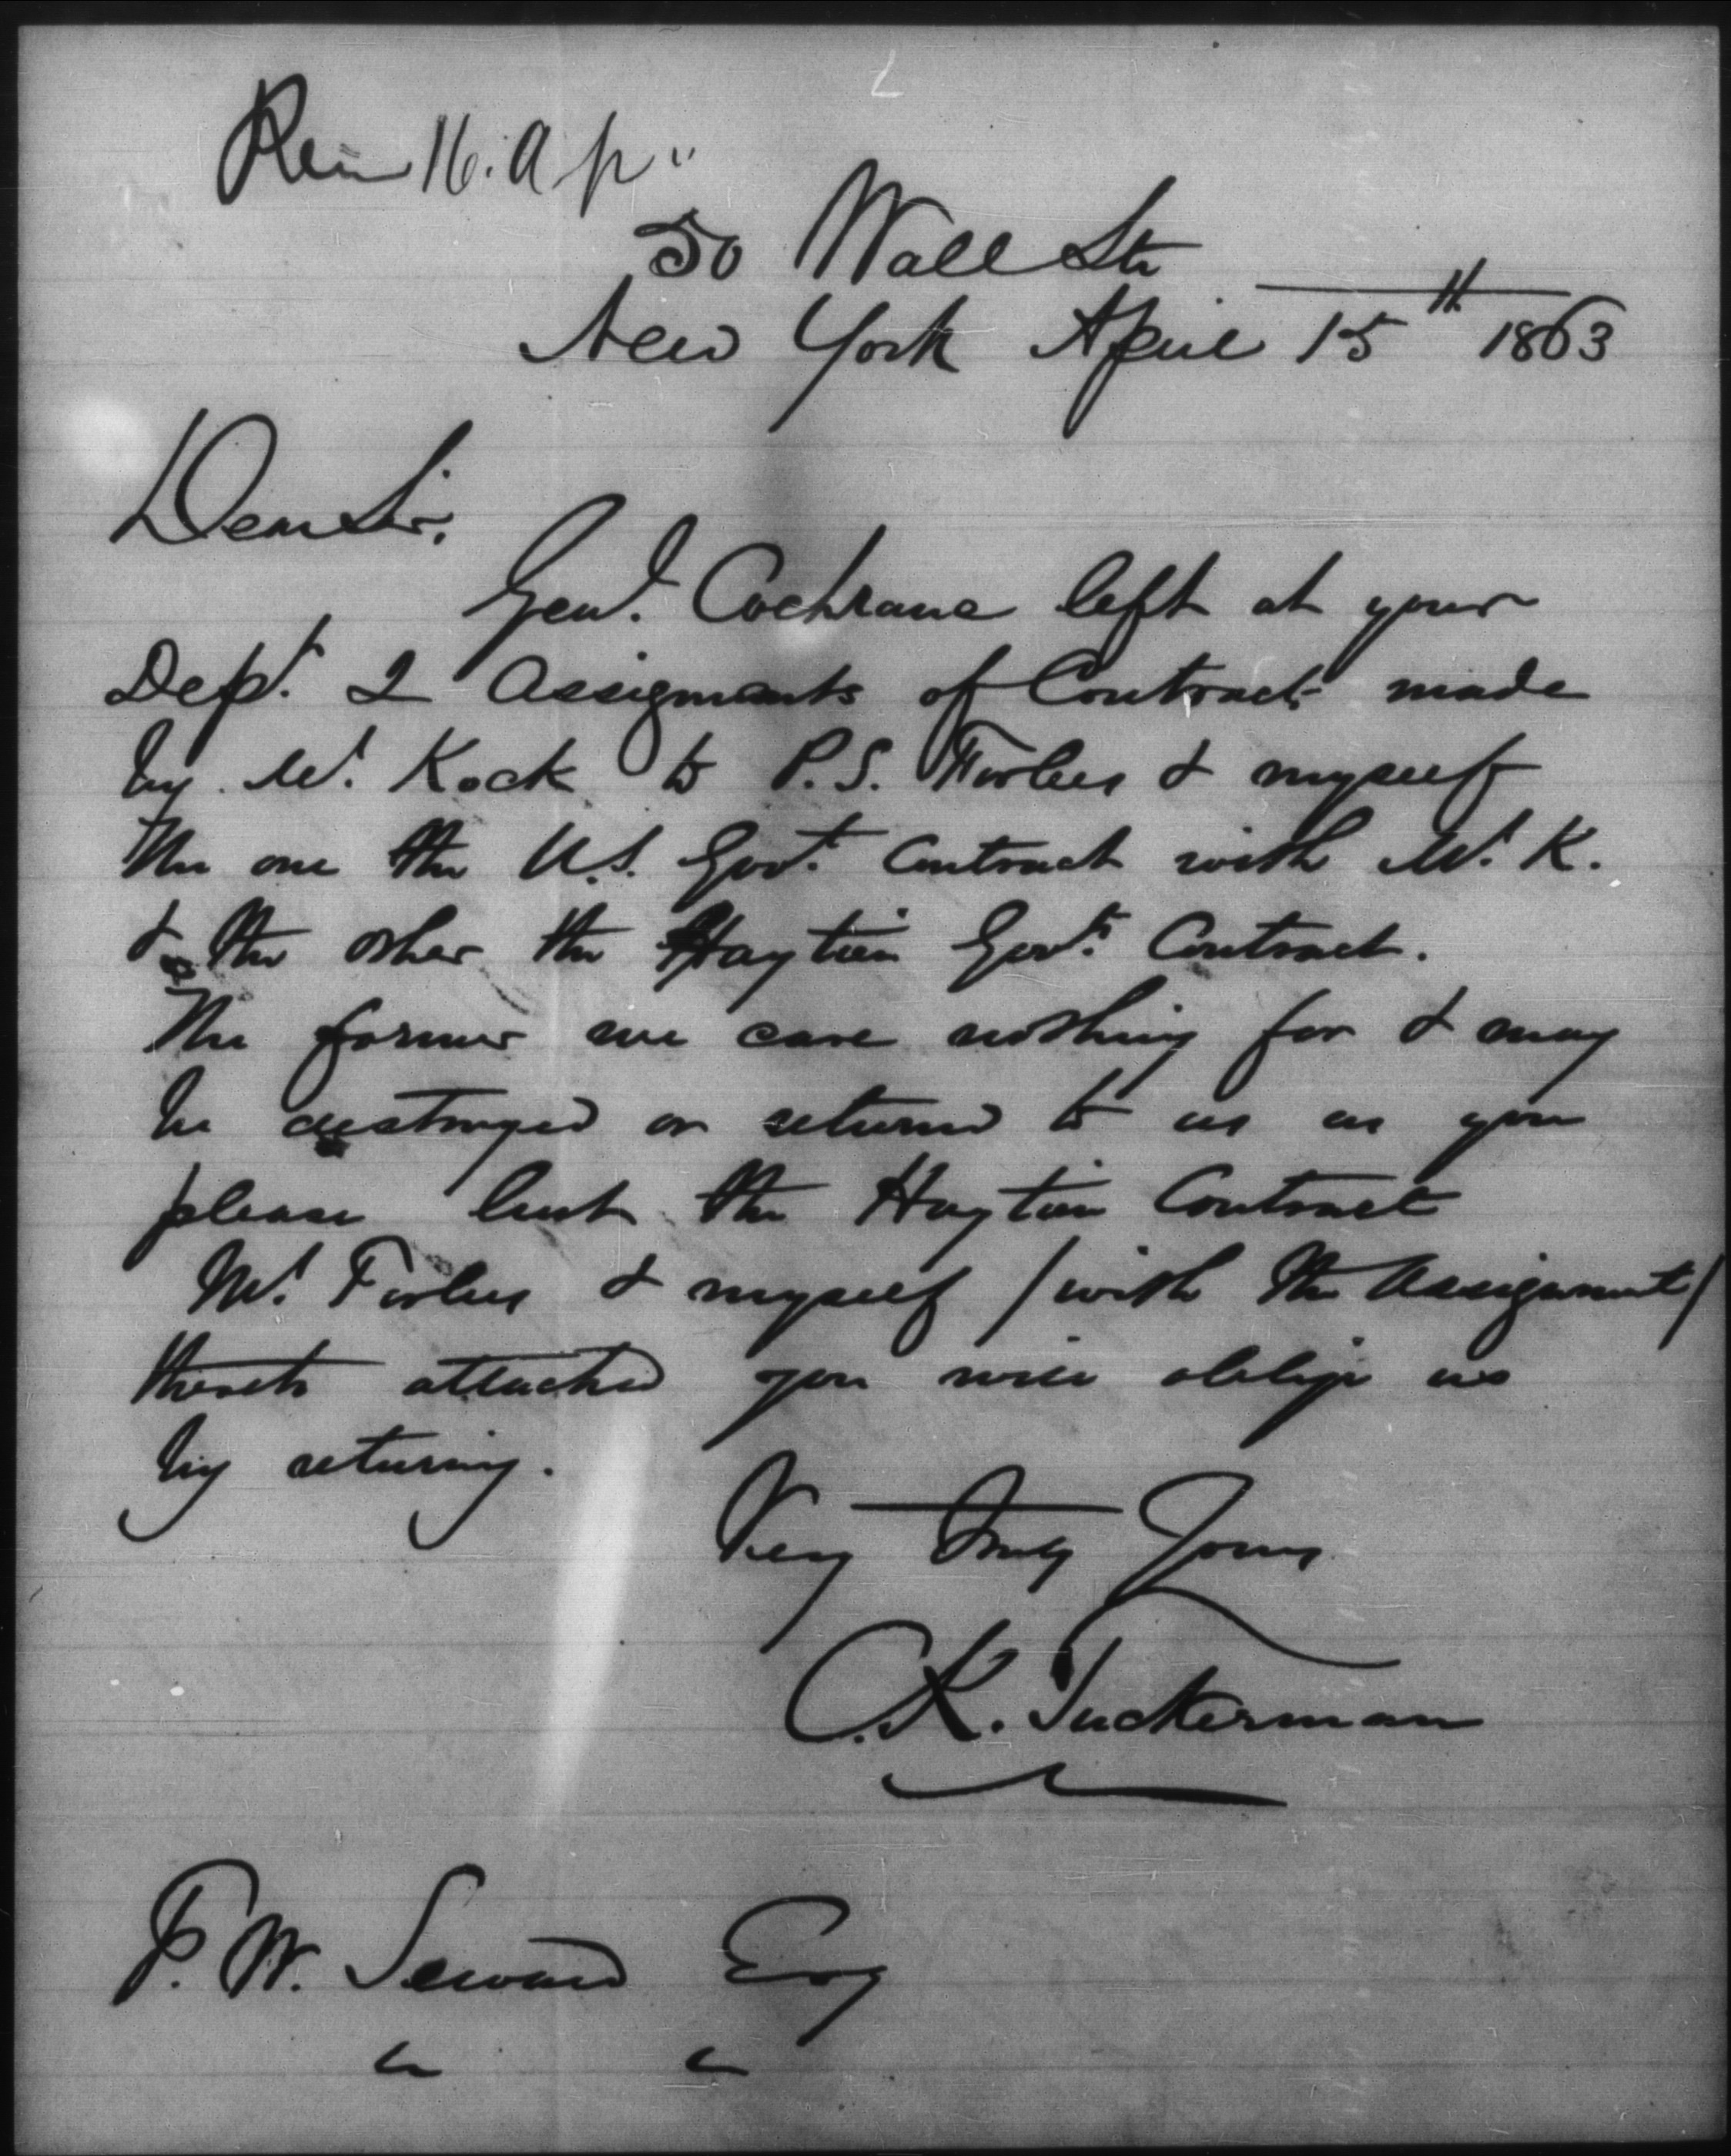 Rec 16. Ap.
50 Wall St
New York April 15th 1863
Dear Sir.
Genl. Cochrane left at your
Dept. 2 Assignments of Contract made
by Mr. Kock to P.S. Forbes & myself
The one the U.S. Govt. Contract with Mr. K.
& the other the Haytien Govt. Contract.
The former we care nothing for & may
be destroyed or returned to us as you
please but the Haytien Contract
Mr. Forbes & myself (with the Assignment)
thereto attached you will oblige us
by returning.
Very truly Yours
C.K. Tuckerman
F. W. Seward Esq